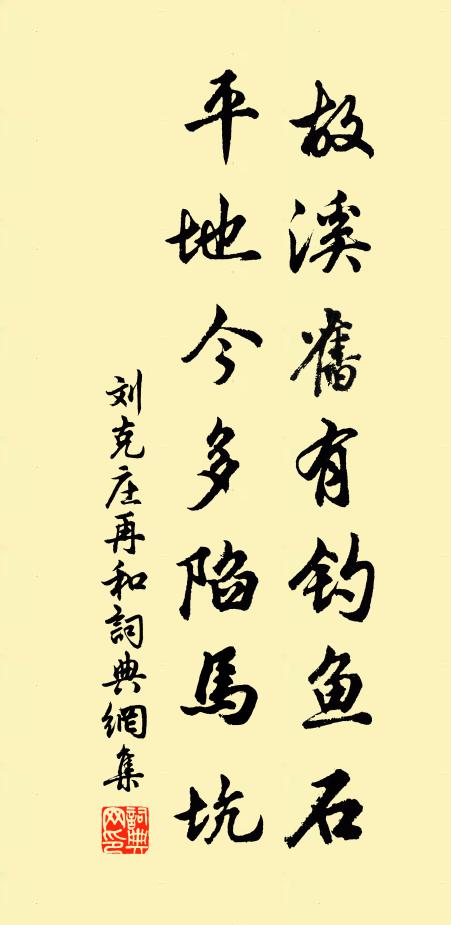 故溪舊有钓鱼石
平地今多陷馬坑
刘克庄再和詞典網集
詞典
网印